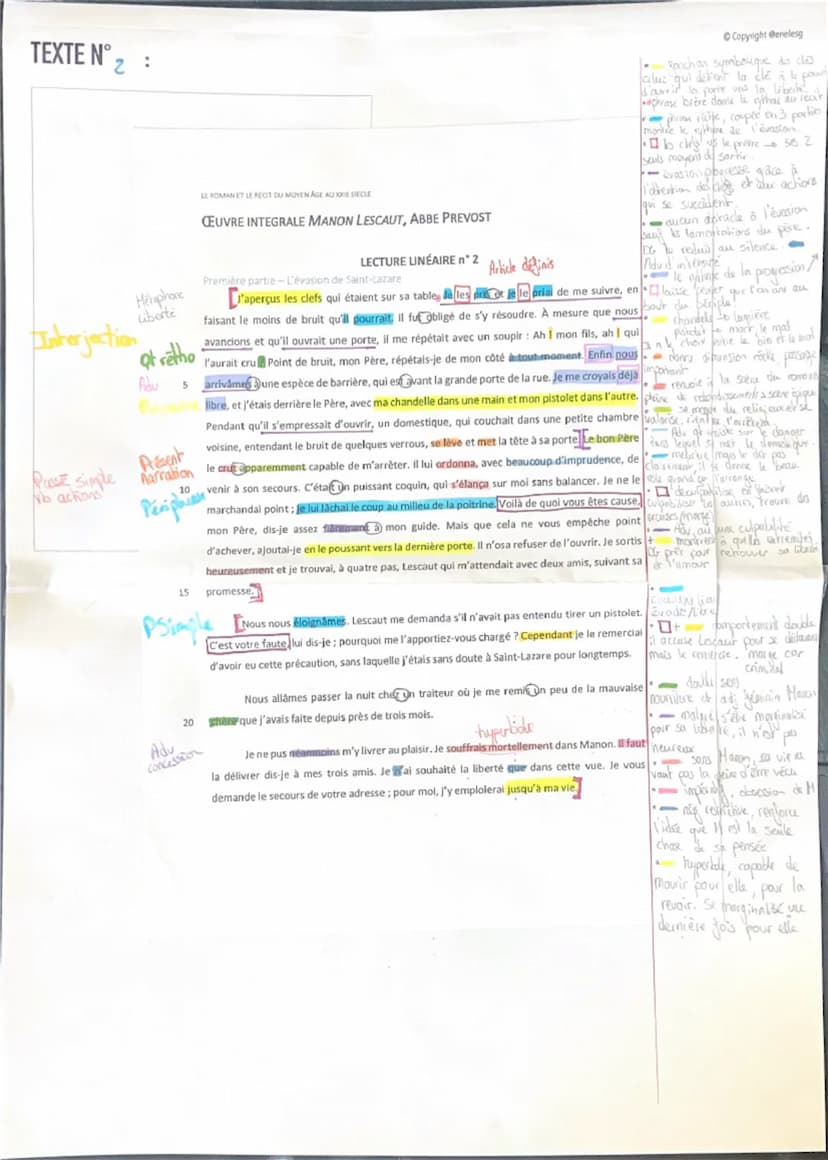 © Copyright @enelesg
TEXTE N° 2 :
LE ROMAN ET LE RECIT DU MOYEN ÂGE AU XXIE SIECLE
ŒUVRE INTEGRALE MANON LESCAUT, ABBE PREVOST
LECTURE LINÉAIRE n° 2
Article définis
Première partie – L'évasion de Saint-Lazare
J'aperçus les clefs qui étaient sur sa table. Je les pris et je le priai de me suivre, en
faisant le moins de bruit qu'il pourrait. Il fut obligé de s'y résoudre. À mesure que nous
avancions et qu'il ouvrait une porte, il me répétait avec un soupir : Ah ! mon fils, ah ! qui
l'aurait cru ? Point de bruit, mon Père, répétais-je de mon côté à tout moment. Enfin nous
5 arrivâmes à une espèce de barrière, qui est avant la grande porte de la rue. Je me croyais déjà
libre, et j'étais derrière le Père, avec ma chandelle dans une main et mon pistolet dans l'autre.
Pendant qu'il s'empressait d'ouvrir, un domestique, qui couchait dans une petite chambre
voisine, entendant le bruit de quelques verrous, se lève et met la tête à sa porte. Le bon Père
le crut apparemment capable de m'arrêter. Il lui ordonna, avec beaucoup d'imprudence, de
10 venir à son secours. C'était un puissant coquin, qui s'élança sur moi sans balancer. Je ne le
marchandai point ; je lui lâchai le coup au milieu de la poitrine. Voilà de quoi vous êtes cause,
mon Père, dis-je assez fièrement à mon guide. Mais que cela ne vous empêche point
d'achever, ajoutai-je en le poussant vers la dernière porte. Il n'osa refuser de l'ouvrir. Je sortis
heureusement et je trouvai, à quatre pas, Lescaut qui m'attendait avec deux amis, suivant sa
15 promesse.
Nous nous éloignâmes. Lescaut me demanda s'il n'avait pas entendu tirer un pistolet.
C'est votre faute, lui dis-je ; pourquoi me l'apportiez-vous chargé ? Cependant je le remerciai
d'avoir eu cette précaution, sans laquelle j'étais sans doute à Saint-Lazare pour longtemps.
Nous allâmes passer la nuit chez un traiteur où je me remis un peu de la mauvaise
20 chère que j'avais faite depuis près de trois mois.
hyperbole
Je ne pus néanmoins m'y livrer au plaisir. Je souffrais mortellement dans Manon. Il faut
la délivrer dis-je à mes trois amis. Je n'ai souhaité la liberté que dans cette vue. Je vous
demande le secours de votre adresse ; pour moi, j'y emploierai jusqu'à ma vie.
Métaphore
Liberté
Interjection
Qt rétho
Adv
Présent
Narration
Passé simple
Vb actions
Périphrase
P Simple
Adv
concession
symbolique des clés
la clé a le pouvoir
d'ouvrir la porte vers la liberté
phrase brève donne le rythme
coupée en 3 parties
montre le rythme de l'évasion
les clefs vs le prêtre → ses 2
seuls moyens de sortir
évasion progresse grâce à
et aux actions
qui se succèdent
aucun obstacle à l'évasion
sauf les lamentations du père.
le réduit au silence
Adv d'intensité
de la progression
chandelle → lumière
pistolet → mort, le mal
le choix entre le bien et le mal
comportement double
il accuse Lescaut pour se
mais le remercie. marge car
criminel
double sens
nourriture et
malgré s'être marginalisé
pour sa liberté, il n'est pas
heureux
sans Manon, sa vie ne
vaut pas la peine d'être vécu
obsession de M
nég restrictive, renforce
l'idée que M est la seule
chose de sa pensée
hyperbole, capable de
mourir pour elle, pour la
revoir. Se marginalise une
dernière fois pour elle